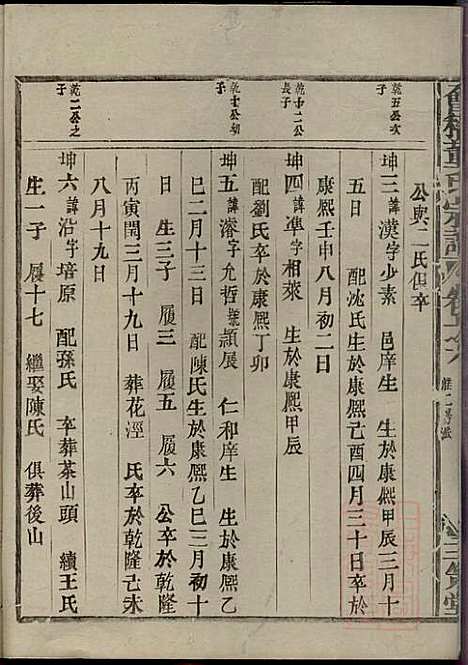 會稽董氏宗譜
公與二氏俱卒
乾五公次子
坤三諱漢字少素 邑庠生 生於康熙甲辰三月十
五日 配沈氏生於康熙己酉四月三十日卒於
康熙壬申八月初二日
乾十二公長子
坤四諱準字相萊 生於康熙甲辰
配劉氏卒於康熙丁卯
乾十公初子
坤五諱濬字允哲號頴展 仁和庠生 生於康熙乙
巳二月十三日 配陳氏生於康熙乙巳三月初十
日 生三子 履三 履五 履六 公卒於乾隆
丙寅閏三月十九日 葬花涇 氏卒於乾隆己未
八月十九日
乾二公之子
坤六諱沿字培原 配孫氏 卒葬茶山頭 續王氏
生一子 履十七 繼娶陳氏 俱葬後山